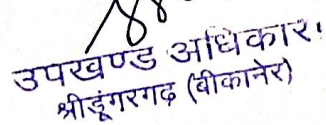 उपखण्ड अधिकारी
श्रीडूंगरगढ़ (बीकानेर)